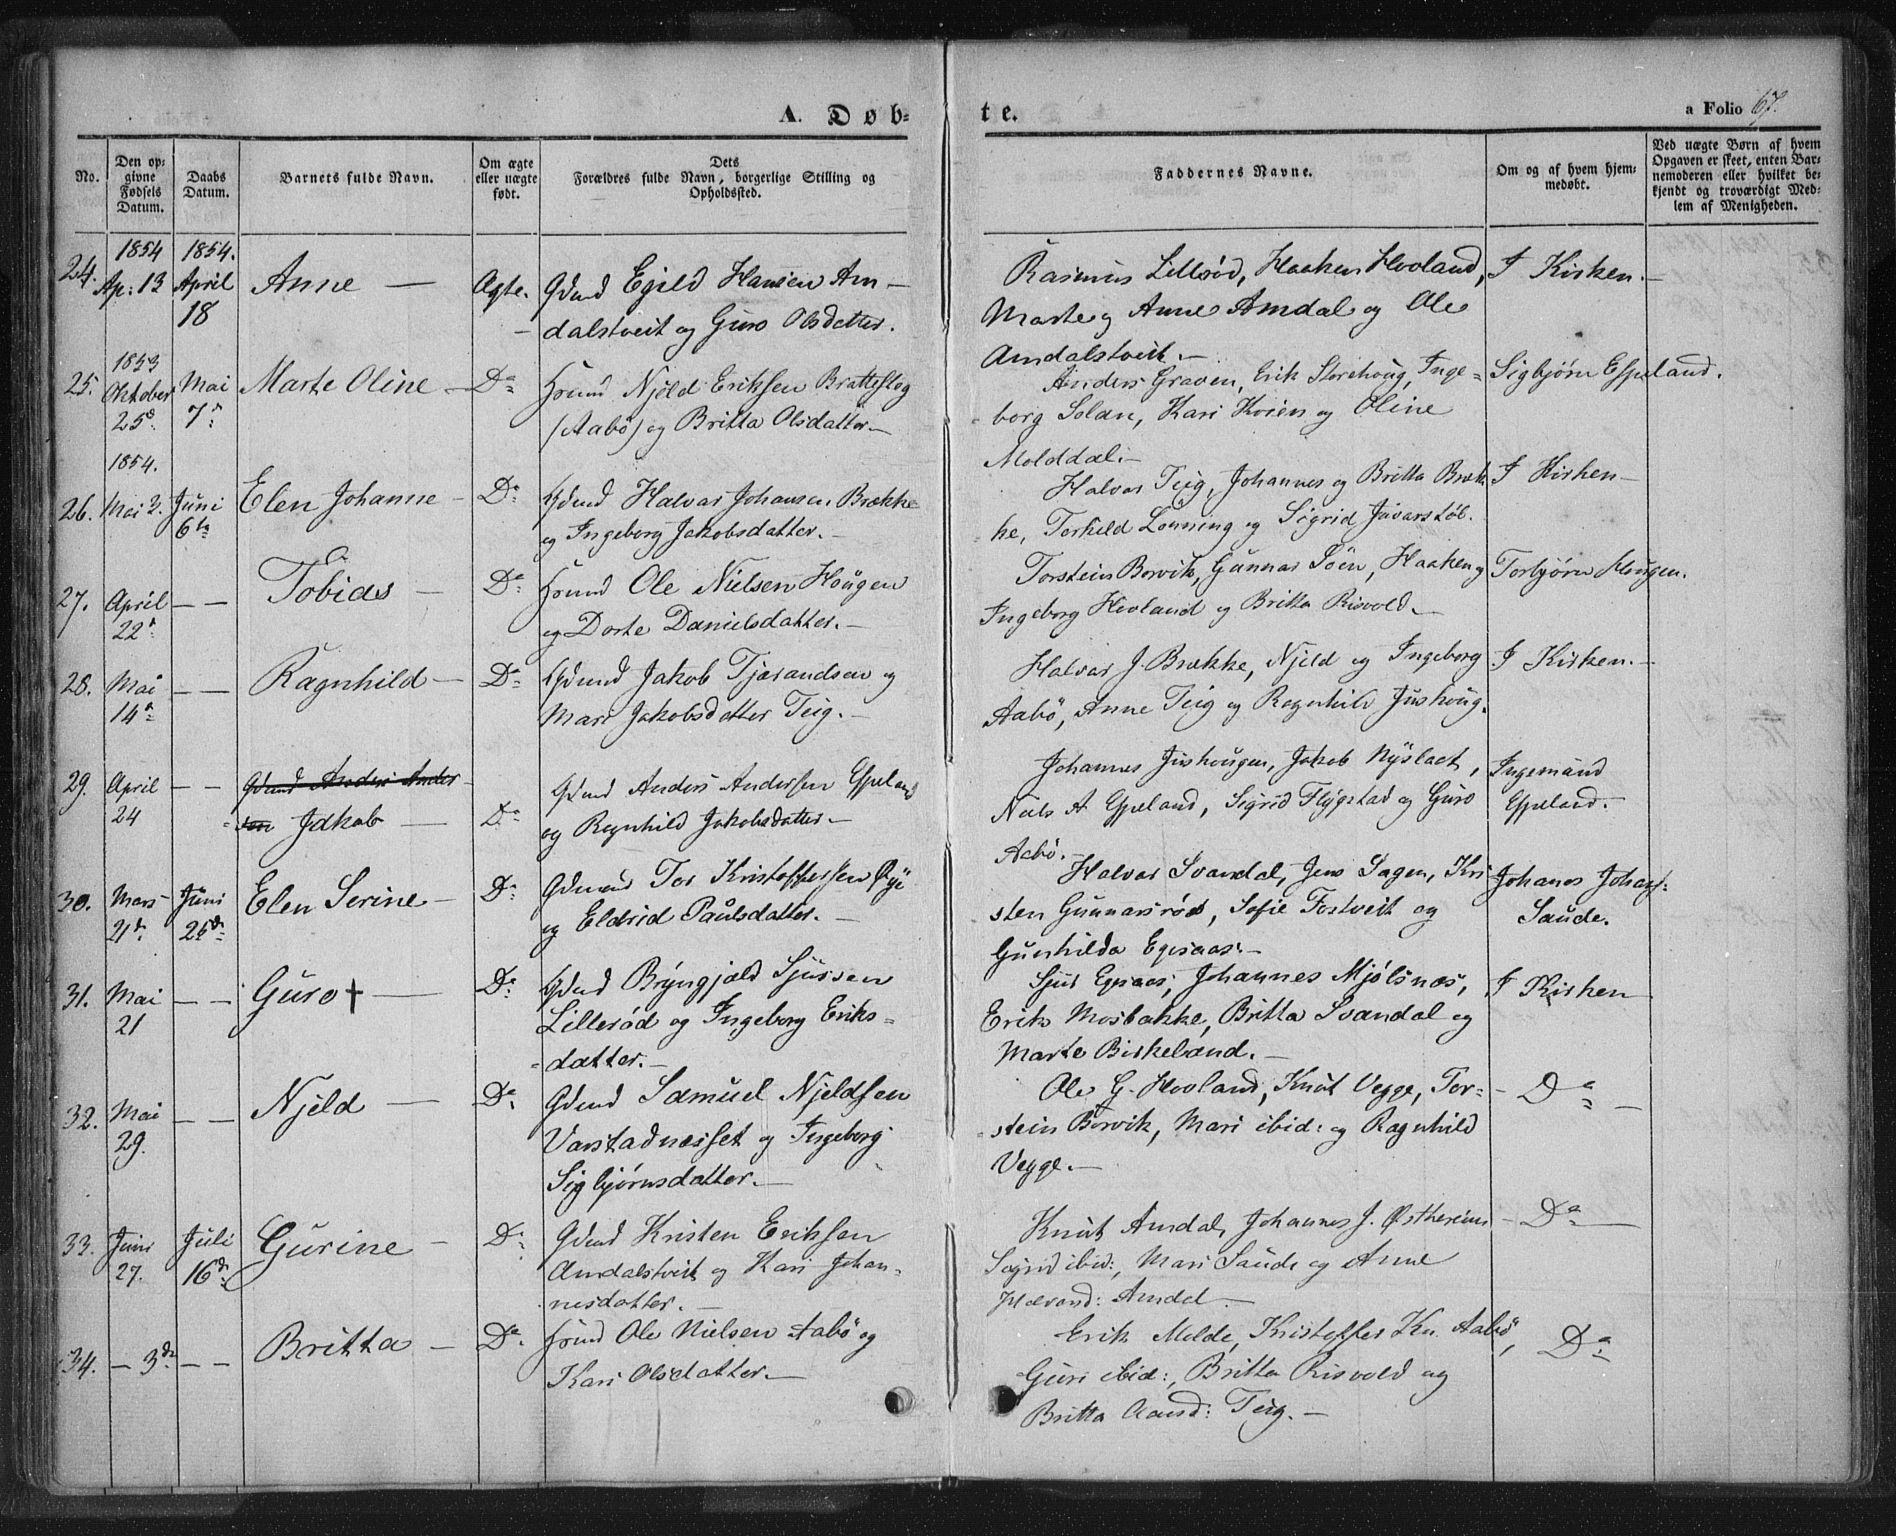 A. Døb-
te.
a Folio 67.
No.
Den op-
givne
Fødsels
Datum.
Daabs
Datum.
Barnets fulde Navn.
Om ægte
eller uægte
født.
Dets
Forældres fulde Navn, borgerlige Stilling og
Opholdssted.
Faddernes Navne.
Om og af hvem hjem-
medøbt.
Ved uægte Børn af hvem
Opgaven er skeet, enten Bar-
nemoderen eller hvilket be-
kjendt og troværdigt Med-
lem af Menigheden.
24.
1854
Ap: 13
1854.
April
18
Anne —
Ægte.
Gdmd Egild Hansen Am-
dalstveit og Guro Olsdatter.
Rasmus Lillerød, Haaken Hovland,
Marte og Anne Amdal og Ole
Amdalstveit.—
I Kirken.—
25.
1853
Oktober
25d.
Mai
7d.
Marte Oline —
Do
Huusmd Njeld Eriksen Bratteflog
(Aabø) og Britta Olsdatter.—
Anders Graven, Erik Storehoug, Inge-
borg Soldn, Kari Kvien og Oline
Molddal.—
Sigbjørn Espeland.
26.
1854.
Mai 2.
Juni
6te
Elen Johanne —
Do
Gdmd Halvar Johansen Brække
og Ingeborg Jakobsdatter.—
Halvar Teig, Johannes og Britta Bræk
ke, Torkild Lonning og Sigrid Jivarstøl.
I Kirken—
27.
April
22d.
— —
Tobias —
Do
Huusmd Ole Nielsen Hougen
og Dorte Danielsdatter.—
Torstein Borvik, Gunnar Søen, Haaken og
Ingeborg Hovland og Britta Risvold.—
Torbjørn Hougen.
28.
Mai
14d
— —
Ragnhild —
Do
Gdmd Jakob Tjærandsen og
Mari Jakobsdatter Teig.—
Halvar J. Brække, Njeld og Ingeborg
Aabø, Anne Teig og Ragnhild Jushoug.
I Kirken.—
29.
April
24
— —
Gdmd Anders Ander-
sen Jakob —
Do
Gdmd Anders Andersen Espeland
og Ragnhild Jakobsdatter—
Johannes Jushougen, Jakob Nyslaet,
Niels A. Espeland, Sigrid Flygstad og Guro
Aabø.
Ingemund
Espeland.—
30.
Mars
21d.
Juni
25d.
Elen Serine —
Do
Gdmd Tor Kristoffersen Øye
og Eldrid Paulsdatter.—
Halvar Svandal, Jens Sagen, Kri
sten Gunnarsrød, Sofie Fostveit og
Gunhilda Egesaas.—
Johanes Johans:
Saude.
31.
Mai
21
— —
Guro † —
Do
Gdmd Bryngjæld Sjursen
Lillerød og Ingeborg Eriks-
datter.—
Sjur Egesaas, Johannes Mjølsnæs,
Erik Mosbakke, Britta Svandal og
Marte Birkeland.—
I Kirken
32.
Mai
29.
— —
Njeld —
Do
Gdmd Samuel Njeldsen
Varstadnæsset og Ingeborg
Sigbjørnsdatter.—
Ole G. Hovland, Knut Vegge, Tor-
stein Borvik, Mari ibid: og Ragnhild
Vegge.—
Do —
33.
Juni
27.
Juli
16d.
Gurine —
Do
Gdmd Kristen Eriksen
Amdalstveit og Kari Johan-
nesdatter.—
Knut Amdal, Johannes J. Østheim
Sigrid ibid:, Mari Saude og Anne
Amdal —
Do —
34.
— 3d
— —
Britta —
Do
Huusmd Ole Nielsen Aabø og
Kari Olsdatter.—
Erik Melde, Kristoffer Kn. Aabø,
Guri ibid:, Britta Risvold og
Britta Teig.—
Do